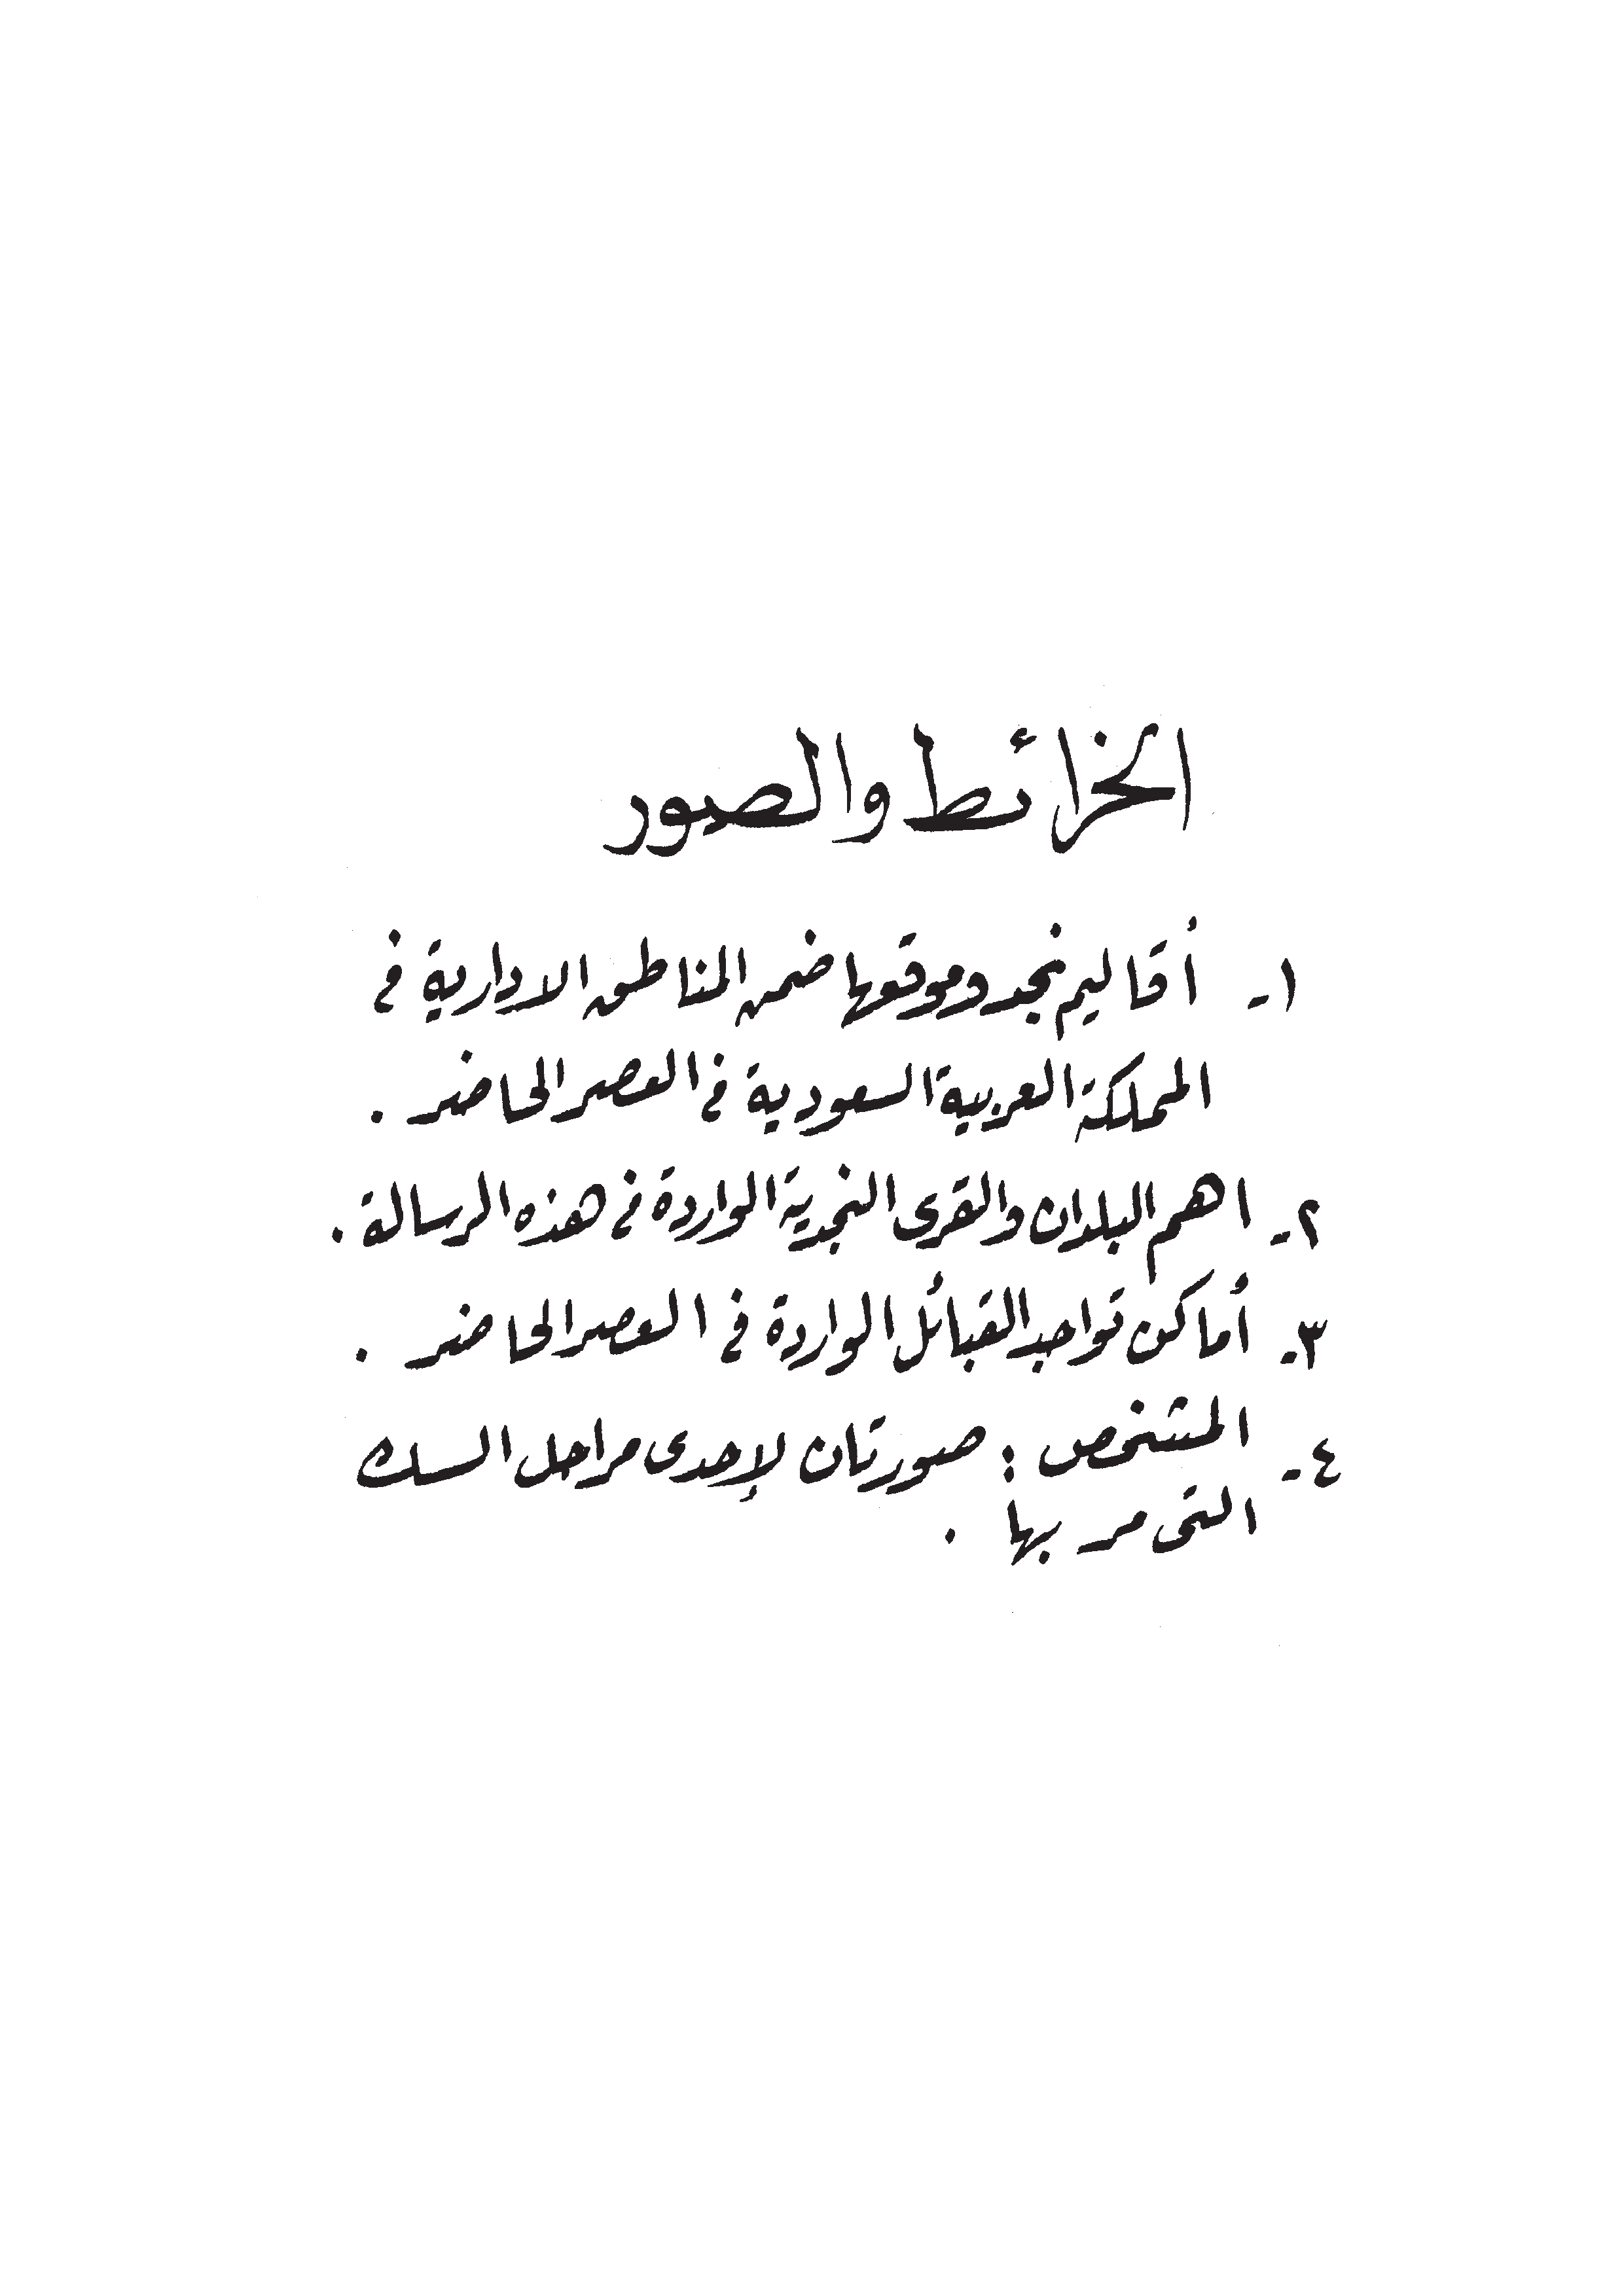 الخرائط والصور
١- أقاليم نجد وموقعها ضمن المناطق الادارية في
المملكة العربية السعودية في العصر الحاضر .
٢- اهم البلدان والقرى النجدية الواردة في هذه الرسالة .
٣- أماكن تواجد القبائل الواردة في العصر الحاضر .
٤- المشخص : صورتان لإحدى مراحل السك
التى مر بها .